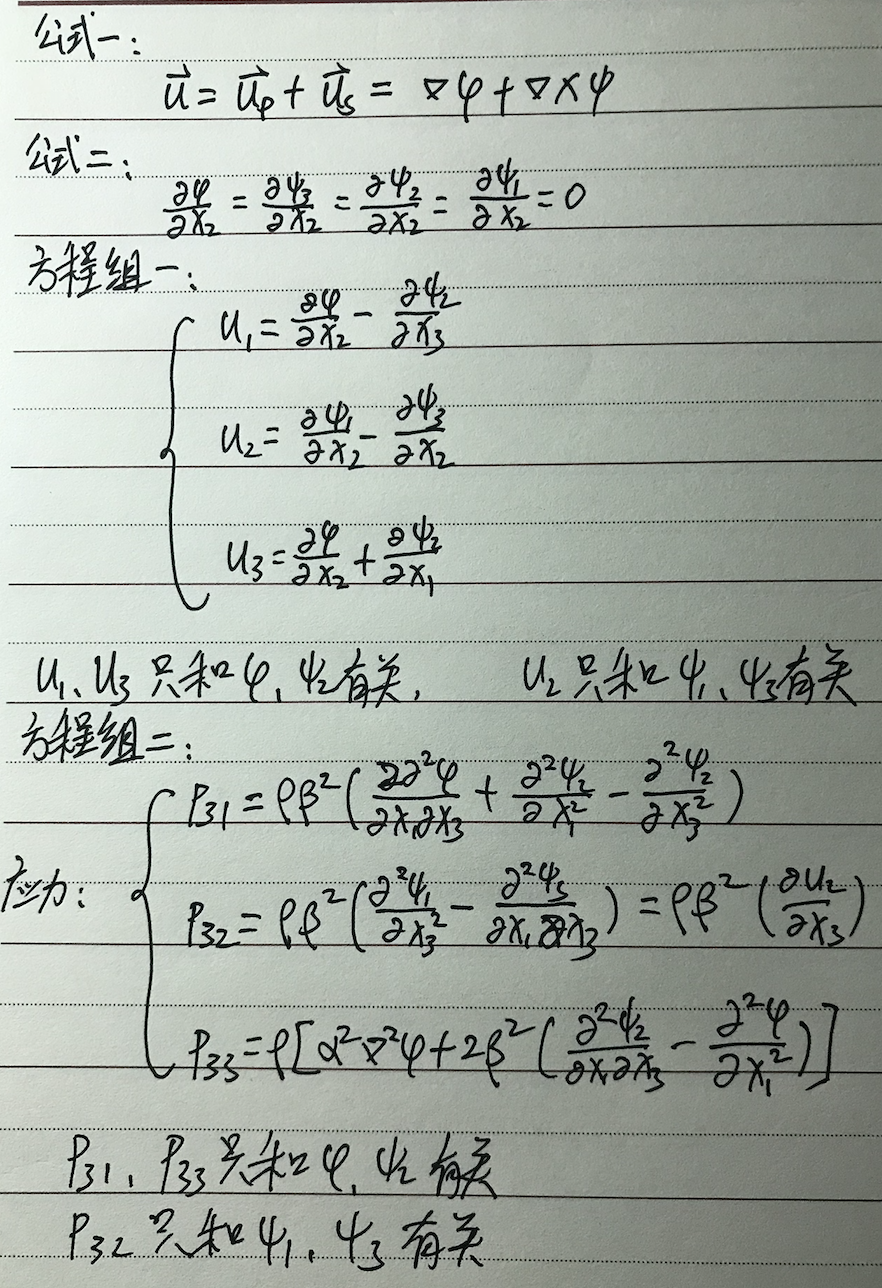 公式一:
$\vec{u} = \vec{u}_{\varphi} + \vec{u}_s = \nabla\varphi + \nabla\times\psi$
公式二:
$\frac{\partial\varphi}{\partial x_2} = \frac{\partial\psi_3}{\partial x_2} = \frac{\partial\psi_2}{\partial x_2} = \frac{\partial\psi_1}{\partial x_2} = 0$
方程组一:
$u_1 = \frac{\partial\varphi}{\partial x_2} - \frac{\partial\psi_2}{\partial x_3}$
$u_2 = \frac{\partial\psi_1}{\partial x_2} - \frac{\partial\psi_3}{\partial x_2}$
$u_3 = \frac{\partial\varphi}{\partial x_2} + \frac{\partial\psi_2}{\partial x_1}$
u₁、u₃只和φ、ψ₂有关, u₂只和ψ₁、ψ₃有关
方程组二:
$P_{31} = \rho\beta^2\left(\frac{2\partial^2\varphi}{\partial x_1\partial x_3} + \frac{\partial^2\psi_2}{\partial x_1^2} - \frac{\partial^2\psi_2}{\partial x_3^2}\right)$
应力: $P_{32} = \rho\beta^2\left(\frac{\partial^2\psi_1}{\partial x_3^2} - \frac{\partial^2\psi_3}{\partial x_1\partial x_3}\right) = \rho\beta^2\left(\frac{\partial u_2}{\partial x_3}\right)$
$P_{33} = \rho\left[\alpha^2\nabla^2\varphi + 2\beta^2\left(\frac{\partial^2\psi_2}{\partial x_1\partial x_3} - \frac{\partial^2\varphi}{\partial x_1^2}\right)\right]$
P₃₁、P₃₃只和φ、ψ₂有关
P₃₂只和ψ₁、ψ₃有关